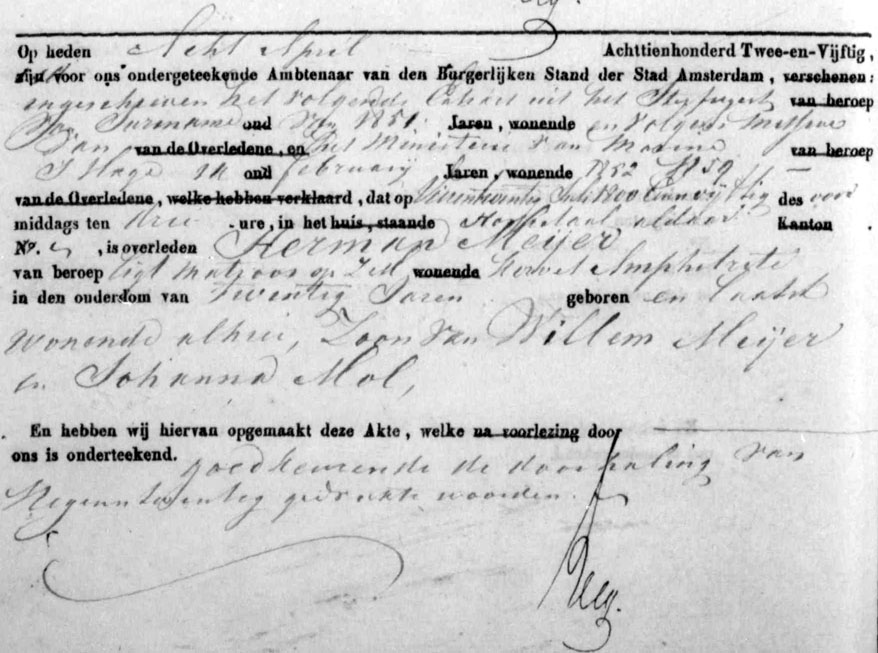 Op heden Acht April Achttienhonderd Twee-en-Vijftig,
zijn voor ons ondergeteekende Ambtenaar van den Burgerlijken Stand der Stad Amsterdam, verschenen:
ingeschreven het volgende Extract uit het van beroep
van Suriname oud van 1851. Jaren, wonende en volgens missive
van van de Overledene, en het Ministerie van Marine van beroep
S Hage 14 oud february Jaren, wonende 1852 No 59
van de Overledene, welke hebben verklaard, dat op Julij 1800 Eenenvijftig des voor
middags ten drie ure, in het huis, staande Hospitaal aldaar Kanton
No. , is overleden Herman Meyer
van beroep ligt matroos op Z M wonende Korvet Amphitrite
in den ouderdom van Twentig Jaren geboren en laatst
wonende alhier, Zoon van Willem Meyer
en Johanna Mol,
En hebben wij hiervan opgemaakt deze Akte, welke na voorlezing door
ons is onderteekend. goedkeurende de doorhaling van
Negenentwentig gedrukte woorden.